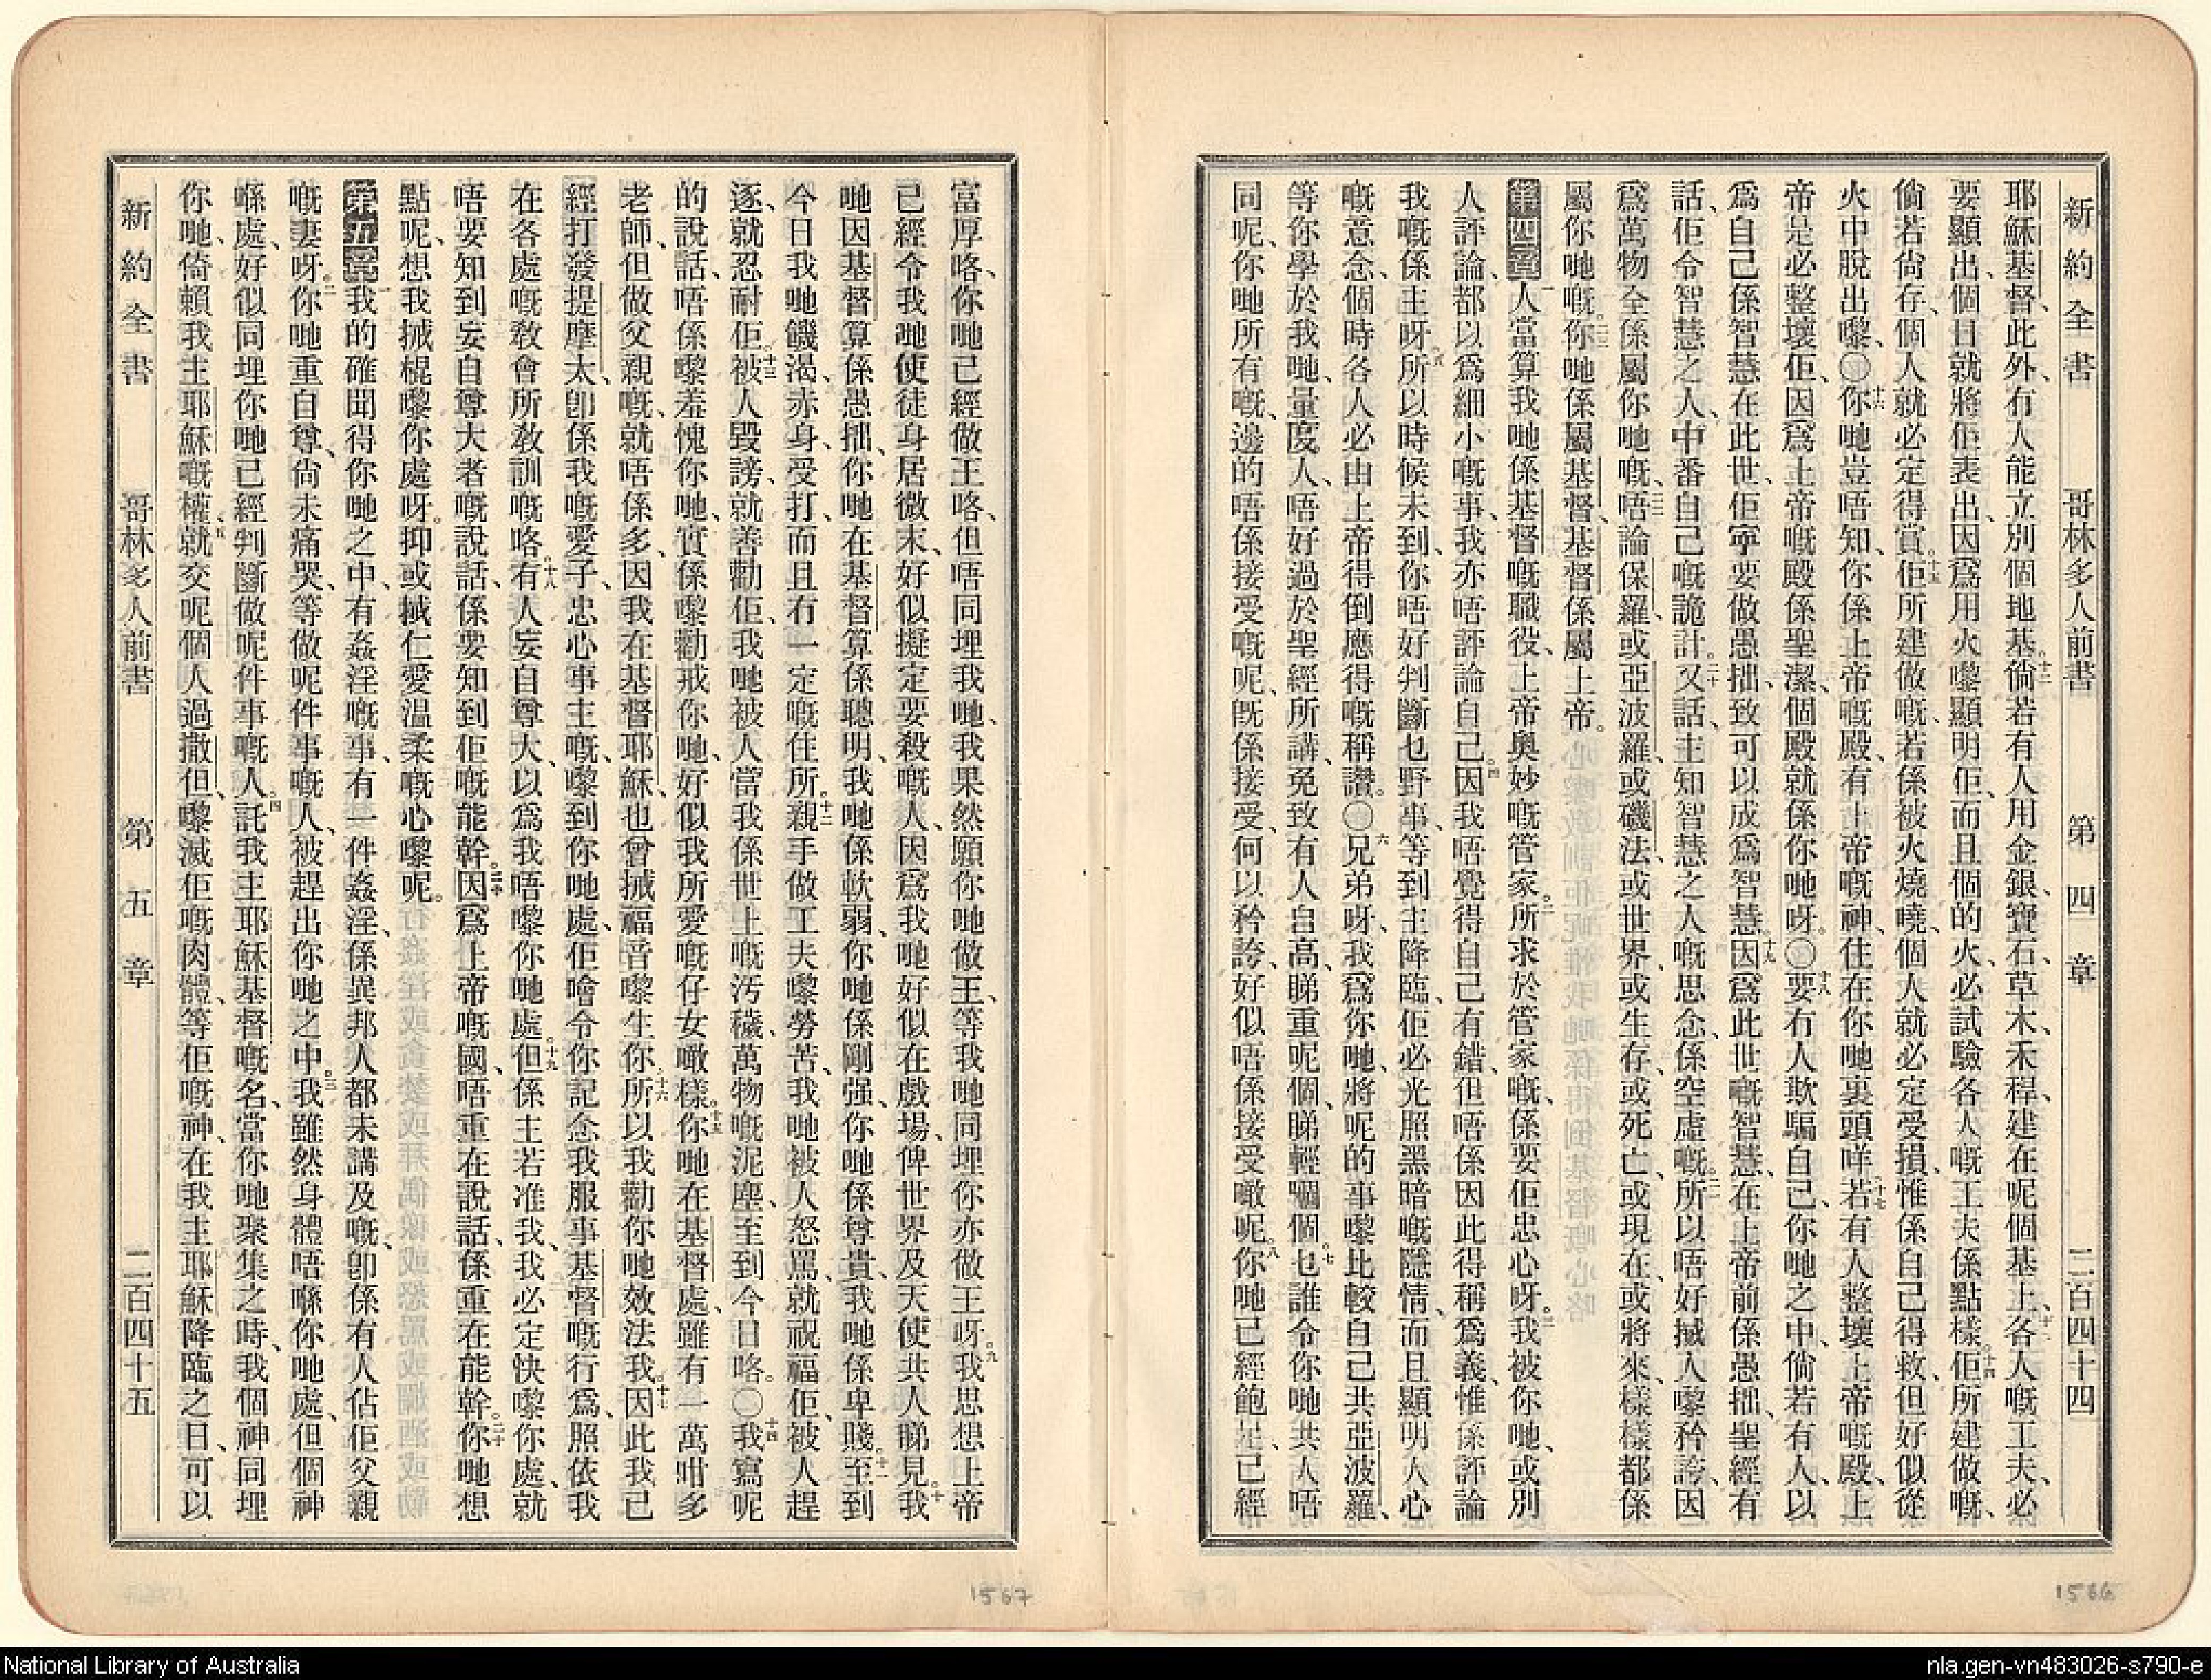 新約全書 哥林多人前書 第四章 二百四十四
耶穌基督、此外冇人能立別個地基。十二倘若有人用金、銀、寶石、草木、禾稈、建在呢個基上、十三各人嘅工夫、必
要顯出、個日就將佢表出、因爲用火嚟顯明佢、而且個的火、必試驗各人嘅工夫係點樣。十四佢所建做嘅、
倘若尙存、個人就必定得賞。十五佢所建做嘅、若係被火燒曉、個人就必定受損、惟係自己得救、但好似從
火中脫出嚟、〇十六你哋豈唔知、你係上帝嘅殿、有上帝嘅神、住在你哋裏頭咩。十七若有人整壞上帝嘅殿、上
帝是必整壞佢、因爲上帝嘅殿係聖潔、個殿就係你哋呀。〇十八要冇人欺騙自己、你哋之中、倘若有人、以
爲自己係智慧在此世、佢寧要做愚拙、致可以成爲智慧。十九因爲此世嘅智慧、在上帝前係愚拙、聖經有
話、佢令智慧之人、中番自己嘅詭計。二十又話、主知智慧之人嘅思念、係空虛嘅。二一所以唔好搣人嚟矜誇、因
爲萬物全係屬你哋嘅、二二唔論保羅、或亞波羅、或磯法、或世界、或生存、或死亡、或現在、或將來、樣樣都係
屬你哋嘅。二三你哋係屬基督、基督係屬上帝。
第四章一人當算我哋係基督嘅職役、上帝奧妙嘅管家。二所求於管家嘅、係要佢忠心呀。三我被你哋、或別
人評論、都以爲細小嘅事、我亦唔評論自己。四因我唔覺得自己有錯、但唔係因此得稱爲義、惟係評論
我嘅係主呀。五所以時候未到、你唔好判斷乜野事、等到主降臨、佢必光照黑暗嘅隱情、而且顯明人心
嘅意念、個時各人必由上帝得倒應得嘅稱讚。〇六兄弟呀、我爲你哋、將呢的事嚟比較自己共亞波羅、
等你學於我哋、量度人、唔好過於聖經所講、免致有人自高、睇重呢個、睇輕嗰個。七乜誰令你哋共人唔
同呢、你哋所有嘅、邊的唔係接受嘅呢、旣係接受、何以矜誇、好似唔係接受噉呢。八你哋已經飽足、已經
富厚咯、你哋已經做王咯、但唔同埋我哋、我果然願你哋做王、等我哋同埋你亦做王呀。九我思想上帝
已經令我哋使徒身居微末、好似擬定要殺嘅人、因爲我哋好似在戲場、俾世界及天使共人睇見。十我
哋因基督算係愚拙、你哋在基督算係聰明、我哋係軟弱、你哋係剛强、你哋係尊貴、我哋係卑賤。十一至到
今日我哋饑渴、赤身、受打、而且冇一定嘅住所。十二親手做工夫嚟勞苦、我哋被人怒罵、就祝福佢、被人趕
逐、就忍耐佢。十三被人毀謗、就善勸佢、我哋被人當我係世上嘅汚穢、萬物嘅泥塵、至到今日咯。〇十四我寫呢
的說話、唔係嚟羞愧你哋、實係嚟勸戒你哋、好似我所愛嘅仔女噉樣。十五你哋在基督處、雖有一萬咁多
老師、但做父親嘅、就唔係多、因我在基督耶穌、也曾搣福音嚟生你。十六所以我勸你哋效法我。十七因此我已
經打發提摩太、卽係我嘅愛子、忠心事主嘅、嚟到你哋處、佢噲令你記念我服事基督嘅行爲、照依我
在各處嘅敎會所敎訓嘅咯。十八有人妄自尊大、以爲我唔嚟你哋處。十九但係主若准我、我必定快嚟你處、就
唔要知到妄自尊大者嘅說話、係要知到佢嘅能幹。二十因爲上帝嘅國、唔重在說話、係重在能幹。二一你哋想
點呢、想我搣棍嚟你處呀。抑或搣仁愛溫柔嘅心嚟呢。
第五章一我的確聞得你哋之中、有姦淫嘅事、有一件姦淫、係異邦人都未講及嘅、卽係有人佔佢父親
嘅妻呀。二你哋重自尊、尙未痛哭、等做呢件事嘅人、被趕出你哋之中。三我雖然身體唔喺你哋處、但個神
喺處、好似同埋你哋、已經判斷做呢件事嘅人。四託我主耶穌基督嘅名、當你哋聚集之時、我個神同埋
你哋、倚賴我主耶穌嘅權、五就交呢個人過撒但、嚟滅佢嘅肉體、等佢嘅神、在我主耶穌降臨之日、可以
新約全書 哥林多人前書 第五章 二百四十五
1567
1566
National Library of Australia
nla.gen-vn483026-s790-e